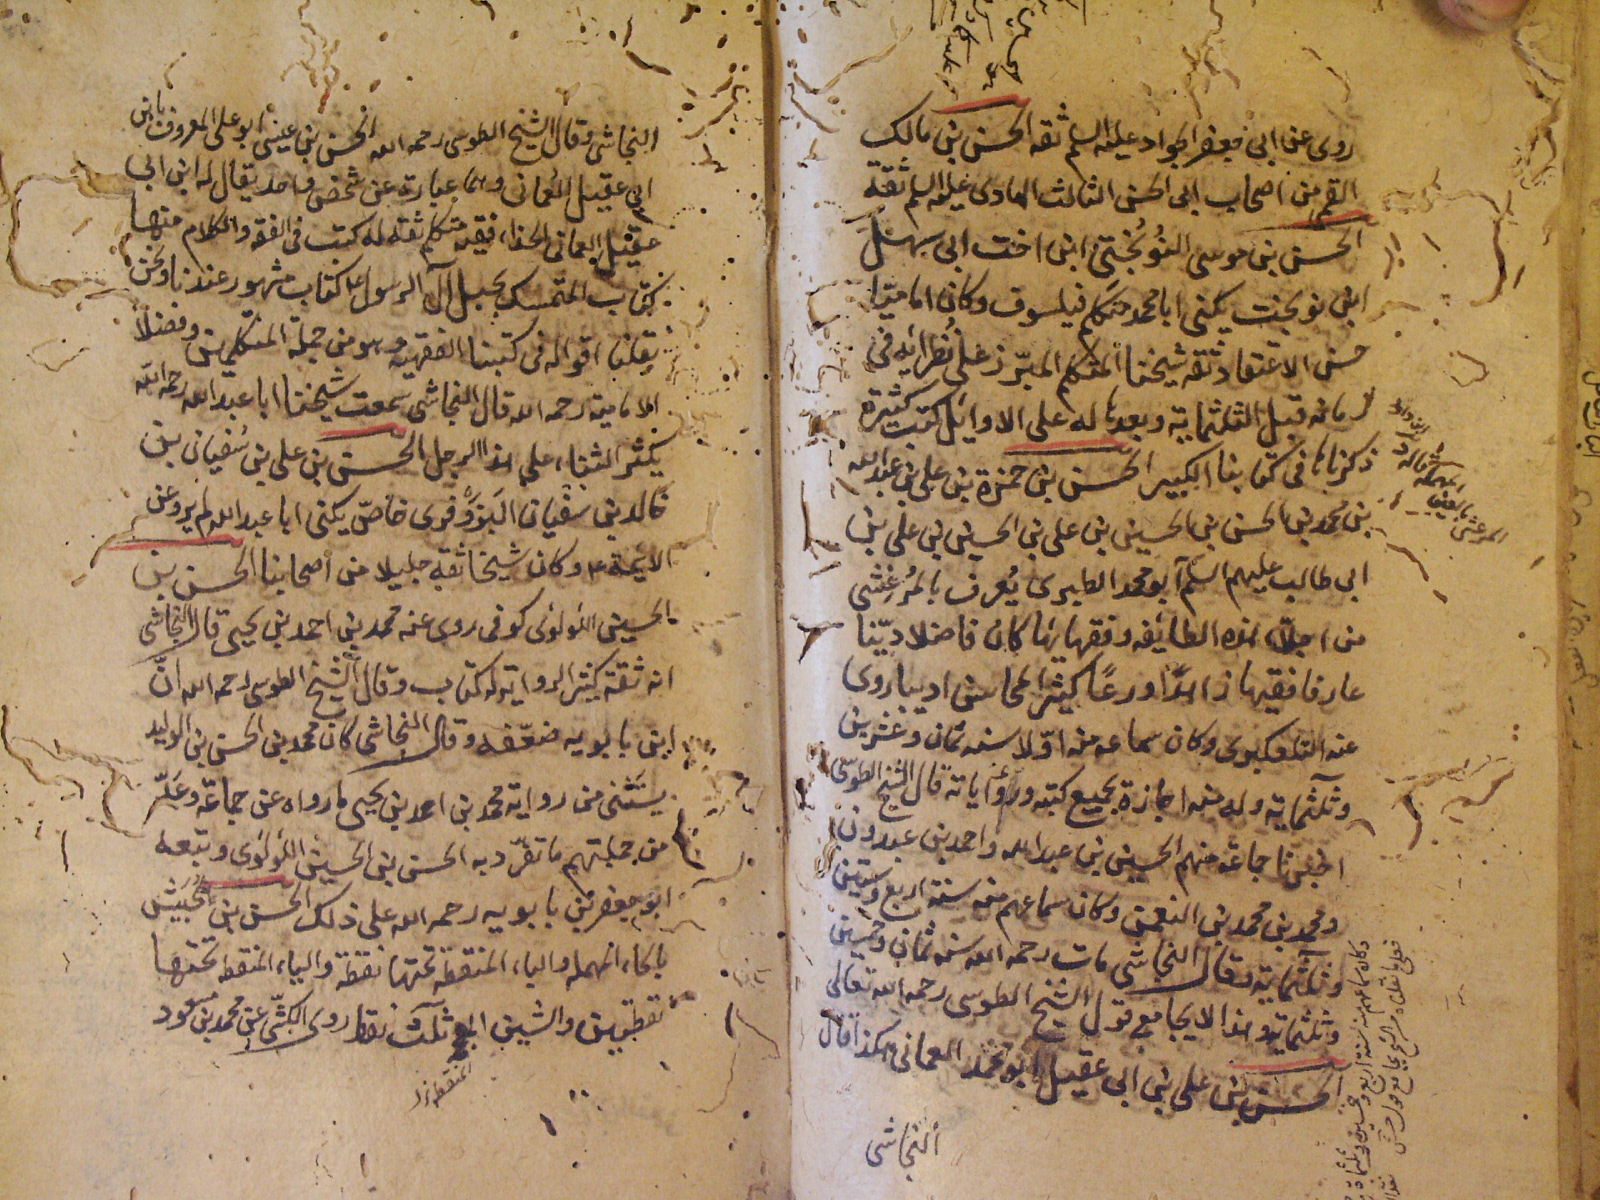 روى عن ابى جعفر الجواد عليه السلم ثقه الحسن بن مالك
القمى من اصحاب ابى الحسن الثالث الهادى عليه السلم ثقة
الحسن بن موسى النوبختى ابن اخت ابى سهل
ابن نوبخت يكنى ابا محمد متكلم فيلسوف وكان اماميا
حسن الاعتقاد ثقه شيخنا المتكلم المبرز على نظرائه فى
زمانه قبل الثلثماية وبعدها له على الاوائل كتب كثيرة
ذكرناها فى كتابنا الكبير الحسن بن حمزة بن على بن عبد الله
بن محمد بن الحسن بن الحسين بن على بن الحسين بن على بن
ابى طالب عليهم السلم ابو محمد الطبرى يُعرف بالمرعشى
من اجلاء هذه الطائفه وفقهائها كان فاضلا ديّنا
عارفا فقيها زاهدًا ورعًا كثير المحاسن اديبا روى
عنه التلعكبرى وكان سماعه منه اوّلا سنه ثمان وعشرين
وثلثماية وله منه اجازة بجميع كتبه ورواياته قال الشيخ الطوسى
اخبرنا جماعة منهم الحسين بن عبد الله واحمد بن عبدون
ومحمد بن محمد بن النعمن وكان سماعهم منه سنة اربع وستين
وثلثماية وقال النجاشى مات رحمه الله سنه ثمان وخمسين
وثلثماية وهذا لا يجامع قول الشيخ الطوسى رحمه الله تعالى
الحسن بن على بن ابى عقيل ابو محمد العمانى هكذا قال
النجاشى
النجاشى وقال الشيخ الطوسى رحمه الله الحسن بن عيسى ابو على المعروف بابن
ابى عقيل العمانى وهما عبارة عن شخص واحد يقال له ابن ابى
عقيل العمانى الحذاء فقيه متكلم ثقه له كتب فى الفقه والكلام منها
كتاب المتمسك بحبل آل الرسول كتاب مشهور عندنا ونحن
نقلنا اقواله فى كتبنا الفقهيه وهو من جملة المتكلمين وفضلاء
الامامية رحمه الله قال النجاشى سمعت شيخنا ابا عبد الله رحمه الله
يكثر الثناء على هذا الرجل الحسن بن على بن سفيان بن
خالد بن سفيان البزوفرى خاصّى يكنى ابا عبد الله لم يرو عن
الائمة ع وكان شيخا ثقه جليلا من اصحابنا الحسن بن
الحسين اللؤلؤى كوفى روى عنه محمد بن احمد بن يحيى قال النجاشى
انه ثقة كثير الرواية له كتاب وقال الشيخ الطوسى رحمه الله انّ
ابن بابويه ضعّفه وقال النجاشى كان محمد بن الحسن بن الوليد
يستثنى من رواية محمد بن احمد بن يحيى ما رواه عن جماعة وعدّ
من جملتهم ما تفرّد به الحسن بن الحسين اللؤلؤى وتبعه
ابو جعفر بن بابويه رحمه الله على ذلك الحسن بن خبيش
بالحاء المهمله والباء المنقطة تحتها نقطة والياء المنقطه تحتها
نقطتين والشين المعجمه ثلث نقط روى الكشى عن محمد بن مسعود